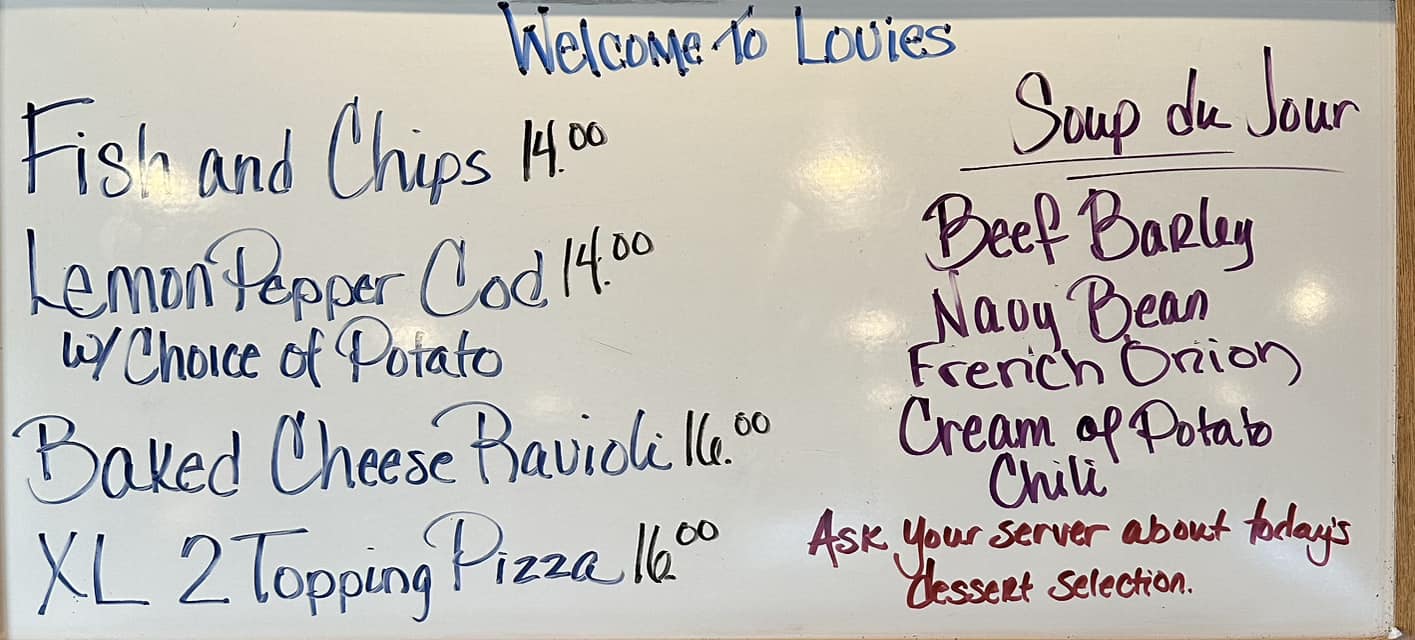 Welcome To Louies
Fish and Chips 14.00
Lemon Pepper Cod 14.00
w/ Choice of Potato
Baked Cheese Ravioli 16.00
XL 2 Topping Pizza 16.00
Soup du Jour
Beef Barley
Navy Bean
French Onion
Cream of Potato
Chili
Ask your server about today's
dessert selection.